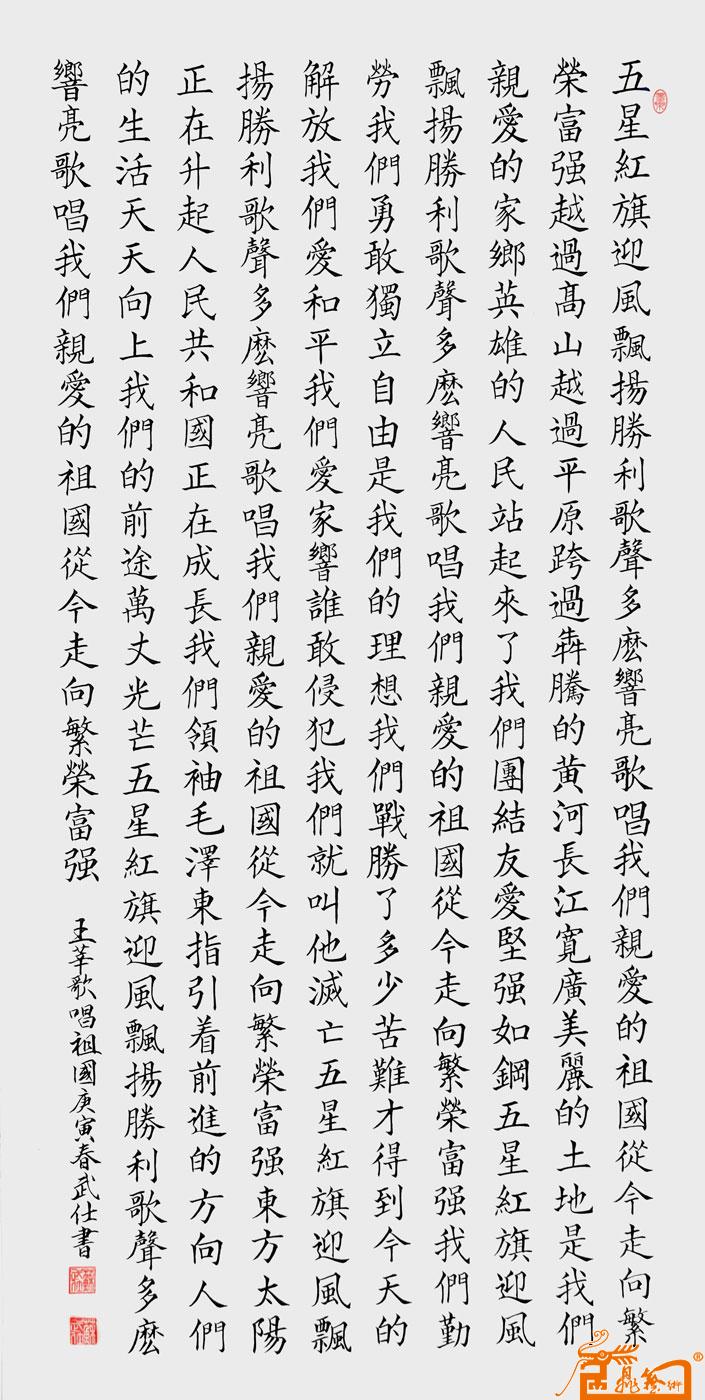 五星紅旗迎風飄揚勝利歌聲多麽響亮歌唱我們親愛的祖國從今走向繁
榮富强越過髙山越過平原跨過犇騰的黄河長江寬廣美麗的土地是我們
親愛的家鄉英雄的人民站起來了我們團結友愛堅强如鋼五星紅旗迎風
飄揚勝利歌聲多麽響亮歌唱我們親愛的祖國從今走向繁榮富强我們勤
勞我們勇敢獨立自由是我們的理想我們戰勝了多少苦難才得到今天的
解放我們愛和平我們愛家響誰敢侵犯我們就叫他滅亡五星紅旗迎風飄
揚勝利歌聲多麽響亮歌唱我們親愛的祖國從今走向繁榮富强東方太陽
正在升起人民共和國正在成長我們領袖毛澤東指引着前進的方向人們
的生活天天向上我們的前途萬丈光芒五星紅旗迎風飄揚勝利歌聲多麽
響亮歌唱我們親愛的祖國從今走向繁榮富强
王莘歌唱祖國庚寅春武仕書